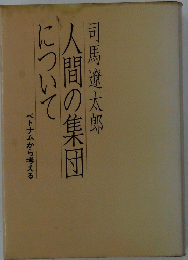 司馬遼太郎
人間の集団
について
ベトナムから考える